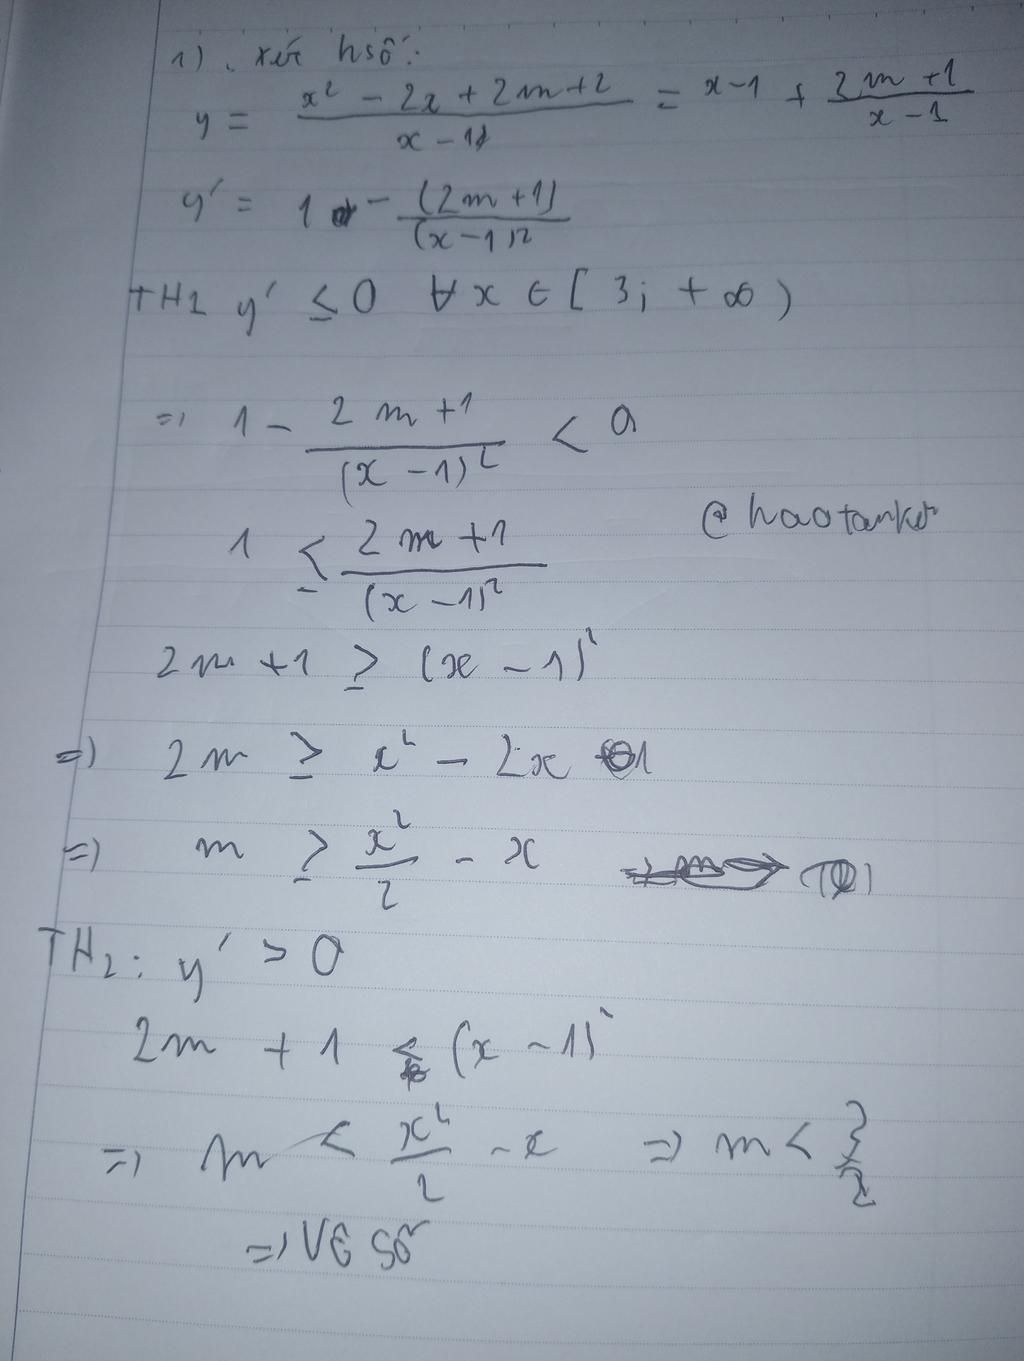 1). xét hsố:
y = \frac{x² - 2x + 2m + 2}{x - 1} = x - 1 + \frac{2m + 1}{x - 1}
y' = 1 - \frac{(2m + 1)}{(x - 1)²}
TH1 y' ≤ 0 ∀x ∈ [3; +∞)
=> 1 - \frac{2m + 1}{(x - 1)²} < 0
1 ≤ \frac{2m + 1}{(x - 1)²}
@haotanker
2m + 1 ≥ (x - 1)²
=) 2m ≥ x² - 2x
=) m ≥ \frac{x²}{2} - x
TH2: y' > 0
2m + 1 < (x - 1)²
=) m < \frac{x²}{2} - x => m < \frac{3}{2}
=> Vô số